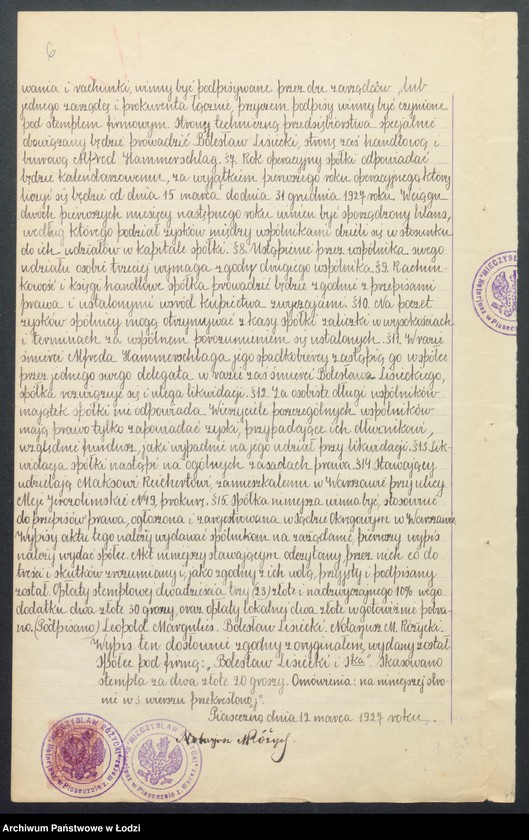 6
wania i rachunki, winny być podpisywane przez dwu zarządców, lub
jednego zarządcę i prokurenta łącznie, przyczem podpisy winny być czynione
pod stemplem firmowym. Stronę techniczną przedsiębiorstwa specjalnie
obowiązany będzie prowadzić Bolesław Lisiecki, stronę zaś handlową i
biurową Alfred Hammerschlag. §7. Rok operacyjny spółki odpowiadać
będzie kalendarzowemu, za wyjątkiem pierwszego roku operacyjnego, który
liczyć się będzie od dnia 15 marca do dnia 31 grudnia 1927 roku. W ciągu
dwóch pierwszych miesięcy następnego roku winien być sporządzony bilans,
według którego podział zysków między wspólnikami dzieli się w stosunku
do ich udziałów w kapitale spółki. §8. Ustąpienie przez wspólnika swego
udziału osobie trzeciej wymaga zgody drugiego wspólnika. §9. Rachun-
kowość i księgi handlowe spółka prowadzić będzie zgodnie z przepisami
prawa i ustalonymi wśród kupiectwa zwyczajami. §10. Na poczet
zysków spólnicy mogą otrzymywać z kasy spółki zaliczki w wysokościach
i terminach za wspólnem porozumieniem się ustalonych. §11. W razie
śmierci Alfreda Hammerschlaga jego spadkobiercy zastąpią go w spółce
przez jednego swego delegata w razie zaś śmierci Bolesława Lisieckiego,
spółka rozwiązuje się i ulega likwidacji. §12. Za osobiste długi wspólników
majątek spółki nie odpowiada. Wierzyciele poszczególnych wspólników
mają prawo tylko zapowiadać zyski, przypadające ich dłużnikowi,
względnie fundusz, jaki wypadnie na jego udział przy likwidacji. §13. Lik-
widacja spółki nastąpi na ogólnych zasadach prawa. §14. Stawający
udzielają Maksowi Reichertowi, zamieszkałemu w Warszawie przy ulicy
Aleje Jerozolimskie №49, prokury. §15. Spółka niniejsza winna być, stosownie
do przepisów prawa, ogłoszona i zarejestrowana w Sądzie Okręgowym w Warszawie.
Wypisy aktu tego należy wydawać spólnikom na żądanie, pierwszy wypis
należy wydać spółce. Akt niniejszy stawającym odczytany, przez nich co do
treści i skutków zrozumiany i, jako zgodny z ich wolą, przyjęty i podpisany
został. Opłaty stemplowej dwadzieścia trzy (23) złote i nadzwyczajnego 10%-wego
dodatku dwa złote 30 groszy, oraz opłaty lokalnej dwa złote w gotowiźnie pobra-
no. (Podpisano) Leopold Margulies. Bolesław Lisiecki. Notarjusz M. Różycki.
Wypis ten dosłownie zgodny z oryginałem, wydany został
Spółce pod firmą: „Bolesław Lisiecki i Ska". Skasowano
stempla za dwa złote 20 groszy. Omówienia: na niniejszej stro-
nie w 3 wierszu przekreślono „
Piaseczno, dnia 12 marca 1927 roku.
Notarjusz MRóżycki
MIECZYSŁAW RÓŻYCKI
Notarjusz w Piasecznie
MIECZYSŁAW RÓŻYCKI
Notarjusz w Piasecznie
MIECZYSŁAW
Notarjusz w Piasecznie
Archiwum Państwowe w Łodzi